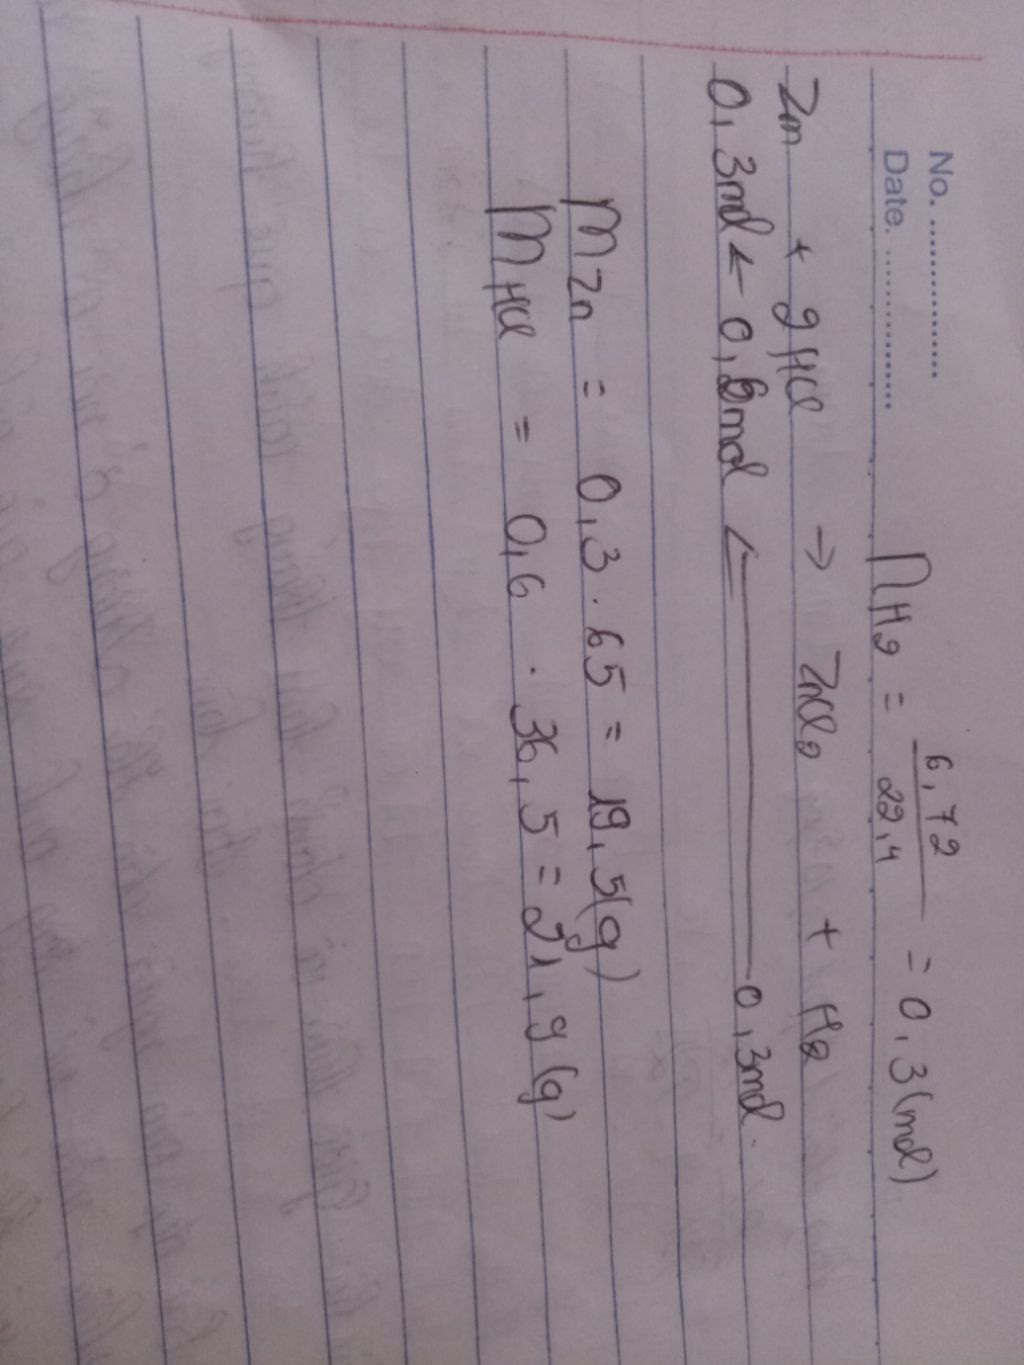 No. ................
Date. ................
nH2 = 6,72 / 22,4 = 0,3(mol)
Zn + 2HCl → ZnCl2 + H2
0,3mol ← 0,6mol ← 0,3mol.
mZn = 0,3 . 65 = 19,5(g)
mHCl = 0,6 . 36,5 = 21,9(g)